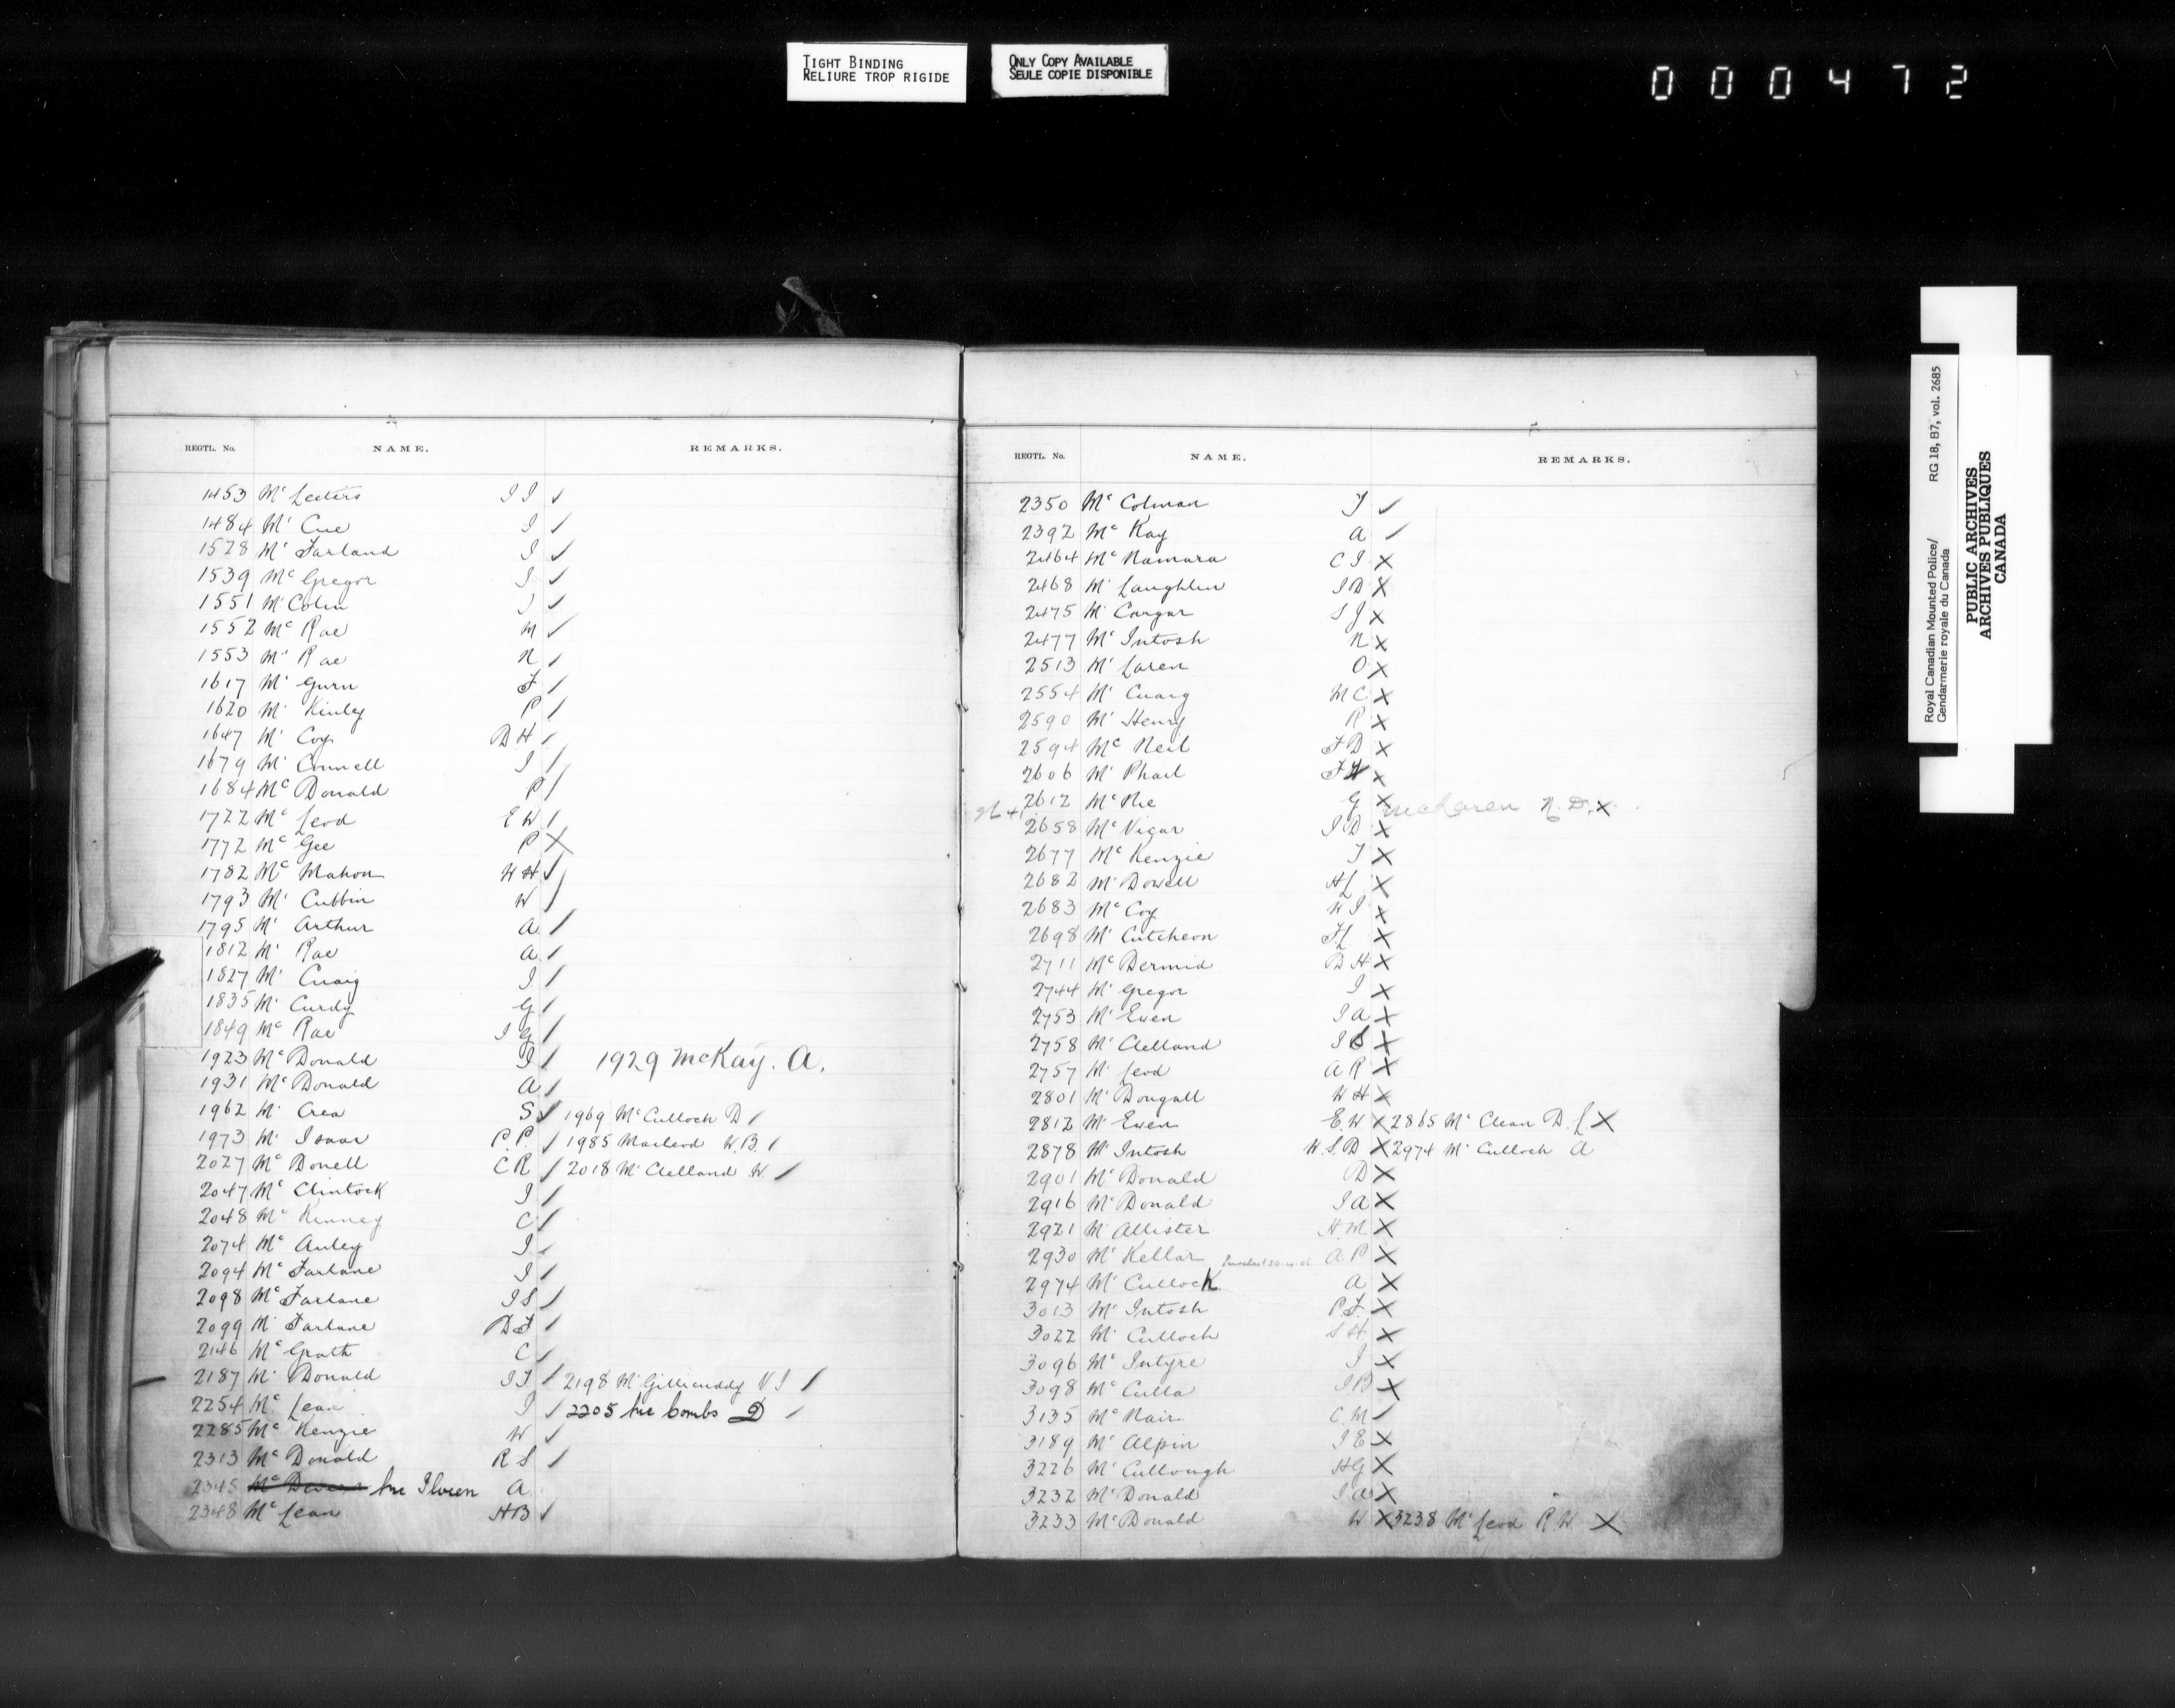 TIGHT BINDING
RELIURE TROP RIGIDE
ONLY COPY AVAILABLE
SEULE COPIE DISPONIBLE
000472
REGTL. No. NAME. REMARKS.
1453 Mc Leeters J J ✓
1484 Mc Cue J /
1528 Mc Farland J ✓
1539 Mc Gregor J ✓
1551 Mc Colin J ✓
1552 Mc Rae M ✓
1553 Mc Rae N /
1617 Mc Gurn F /
1620 Mc Kinley P /
1647 Mc Coy D H /
1679 Mc Connell J /
1684 Mc Donald P /
1722 Mc Leod E W /
1772 Mc Gee P X
1782 Mc Mahon W H ✓
1793 Mc Cubbin W /
1795 Mc Arthur A /
1812 Mc Rae A /
1827 Mc Cuaig J /
1835 Mc Curdy G /
1849 Mc Rae J G /
1923 Mc Donald J / 1929 McKay. A.
1931 Mc Donald A /
1962 Mc Crea S ✓ 1969 Mc Culloch D /
1973 Mc Isaac P. P. / 1985 Macleod W. B. /
2027 Mc Donell C R / 2018 Mc Clelland W. /
2047 Mc Clintock J /
2048 Mc Kenney C /
2074 Mc Auley J ✓
2094 Mc Farlane J /
2098 Mc Farlane J S /
2099 Mc Farlane D F /
2146 Mc Grath C /
2187 Mc Donald J F / 2198 Mc Gillicuddy V J /
2254 Mc Lean J / 2205 Mc Combs D /
2285 Mc Kenzie W ✓
2313 Mc Donald R S /
2345 Mc A.
2348 Mc Lean H B /
REGTL. No. NAME. REMARKS.
2350 Mc Colman J ✓
2392 Mc Kay A /
2464 Mc Namara C J X
2468 Mc Laughlin J D X
2475 Mc Cargar S J X
2477 Mc Intosh N X
2513 Mc Laren O X
2554 Mc Cuaig M C X
2590 Mc Henry R X
2594 Mc Neil F D X
2606 Mc Phail F W X
2612 Mc Nie G X McLaren N. D. X
2658 Mc Vicar J D X
2677 Mc Kenzie J X
2682 Mc Dowell H L X
2683 Mc Coy W J X
2698 Mc Cutcheon F L X
2711 Mc Dermid D H X
2744 Mc Gregor J X
2753 Mc Ewen J A X
2758 Mc Clelland J S X
2757 Mc Leod A R X
2801 Mc Dougall W H X
2812 Mc Ewen E. W. X 2865 Mc Clean D. L X
2878 Mc Intosh W. S. D X 2974 Mc Culloch A
2901 Mc Donald D X
2916 Mc Donald J A X
2921 Mc Allister H. M X
2930 Mc Kellar A P X
2974 Mc Cullock A X
3013 Mc Intosh P. F. X
3022 Mc Culloch S H. X
3096 Mc Intyre J X
3098 Mc Culla J B X
3135 Mc Nair C. M /
3189 Mc Alpin J E X
3226 Mc Cullough H G X
3232 Mc Donald J A X
3233 Mc Donald W X 3238 Mc Leod R W X
Royal Canadian Mounted Police/ RG 18, B7, vol. 2685
Gendarmerie royale du Canada
PUBLIC ARCHIVES
ARCHIVES PUBLIQUES
CANADA